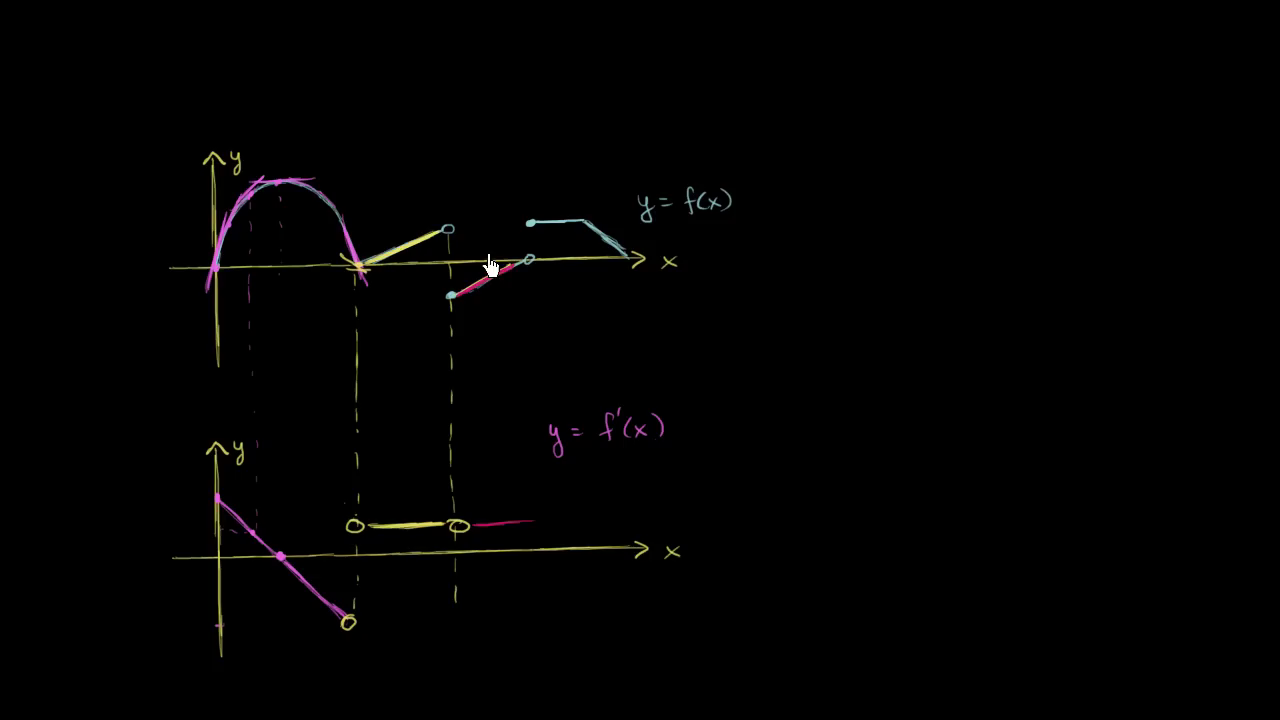 y
y = f(x)
x
y = f'(x)
y
x